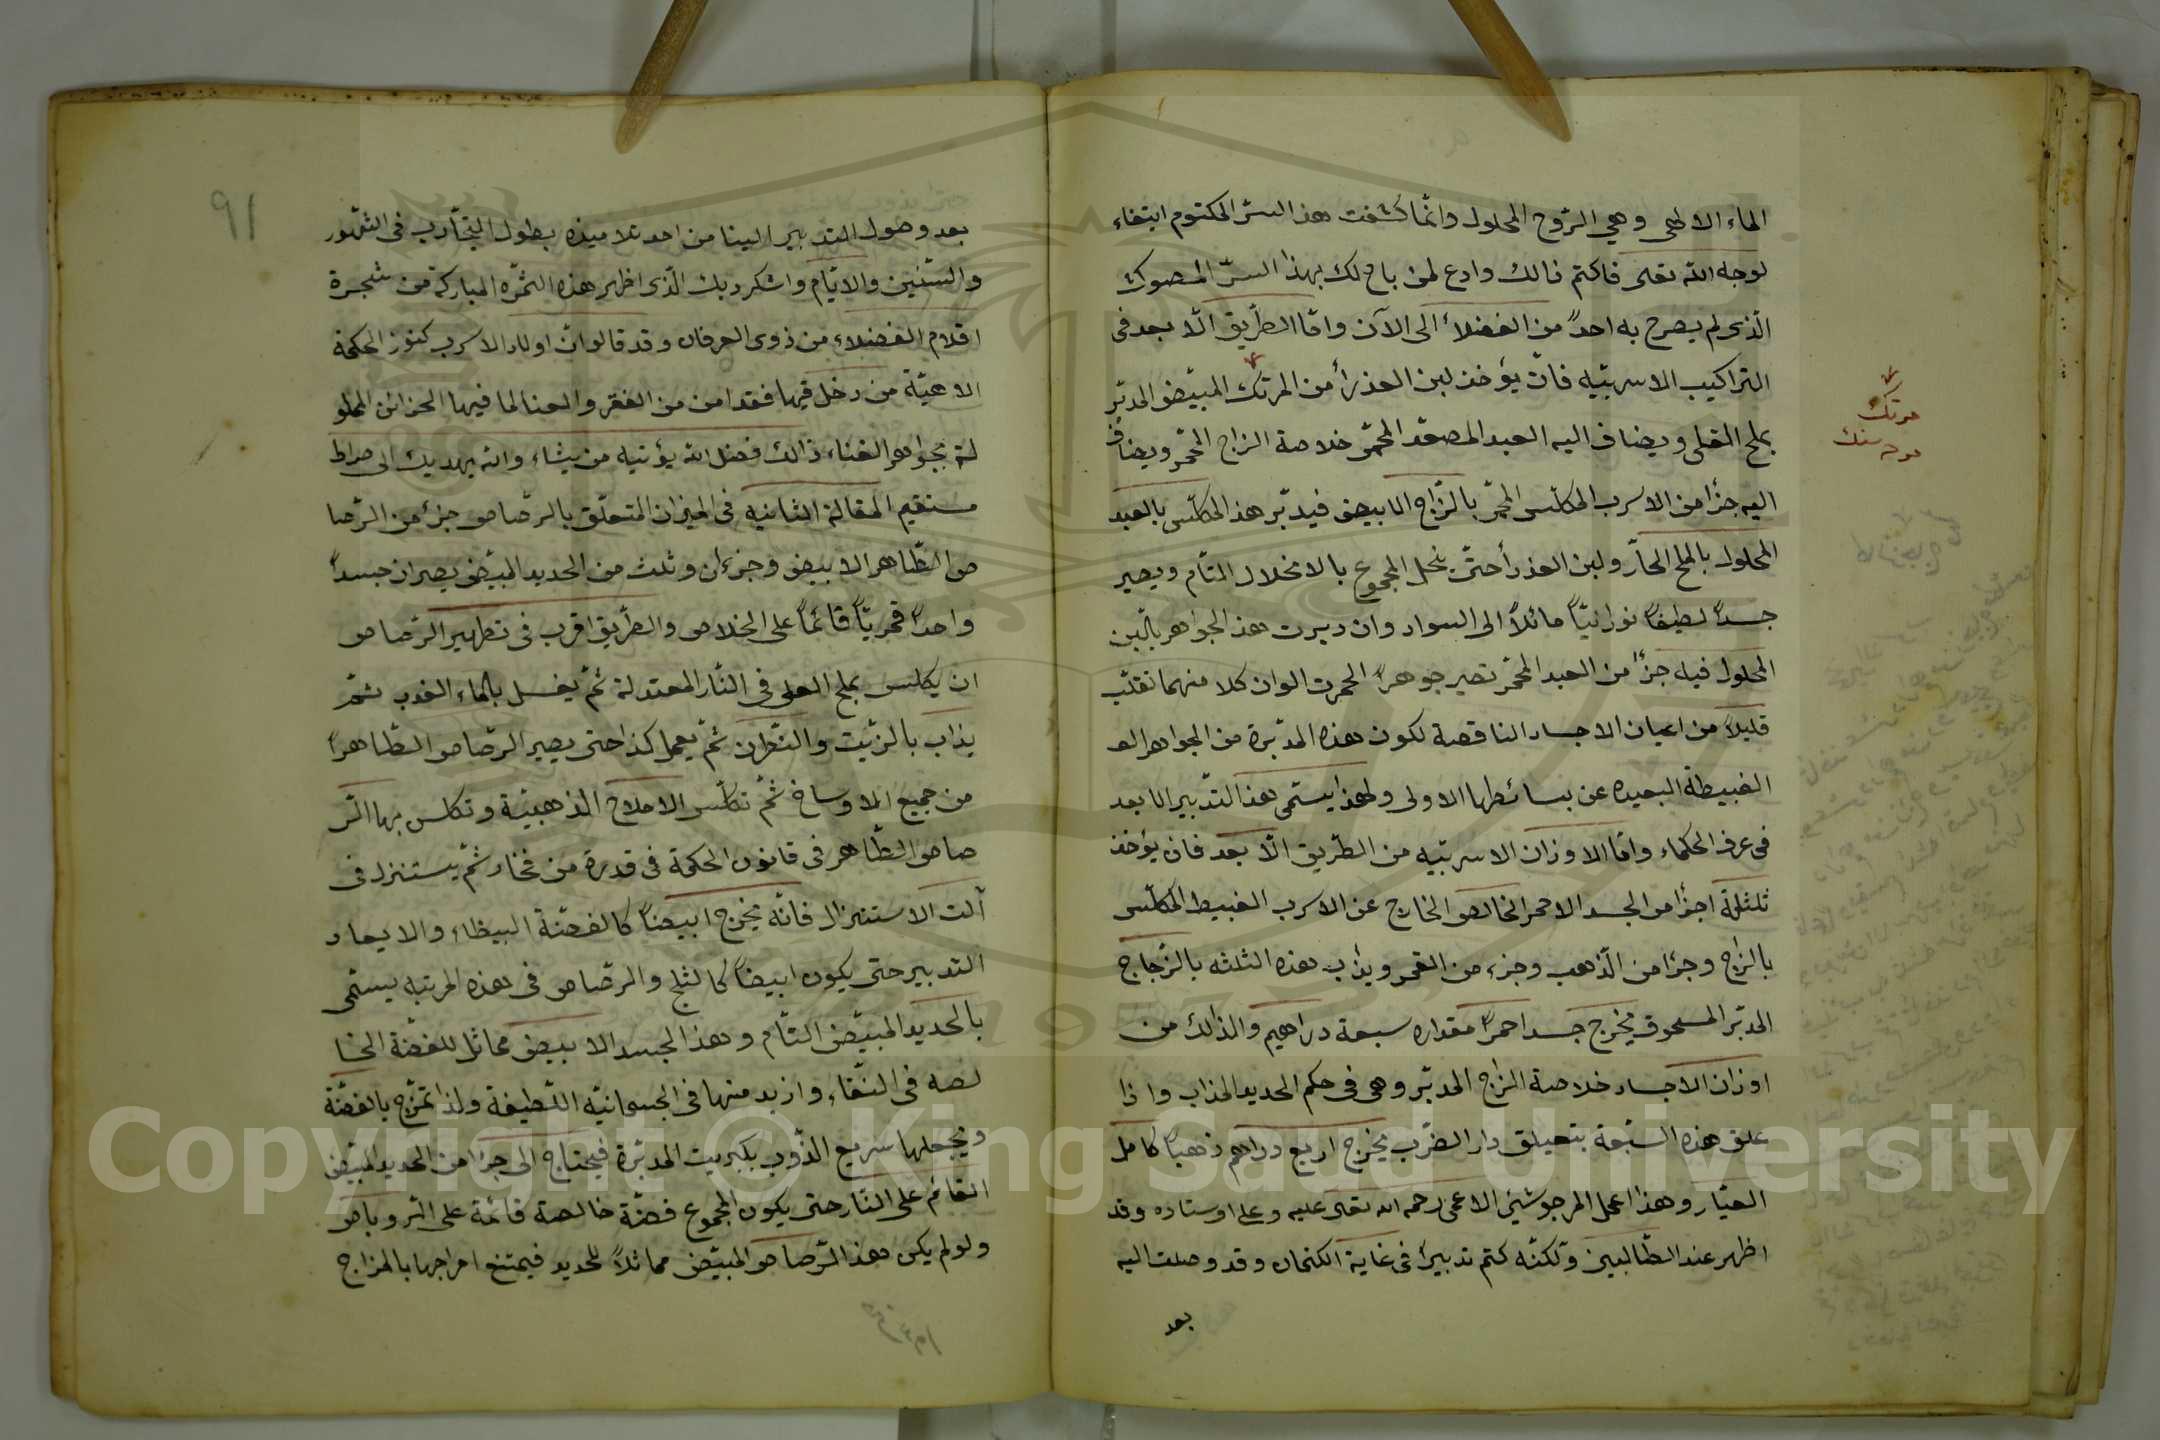 الماء الالهى وهي الرّوح المحلول وانّما كشفت هذا السرّ المكتوم ابتغاء
لوجه الله تعلى فاكتم ذالك وادع لمن باح لك بهذا السرّ المصوك
الّذى لم يصرح به احداً من الفضلاء الى الآن وامّا الطّريق الّا بعد فى
التراكيب الاسربيّه فان يؤخذ لبن العذرأ من المرتك المبيّض المدبّر
بملح القلى ويضاف اليه العبد المصعّد المحمّر خلاصة الزاج المحمّر ويضاف
اليه جزأ من الاسرب المكلّس المحمّر بالزّاج الابيض فيدبّر هذ المكلّس بالعبد
المحلول بالملح الحارّ ولبن العذرأ حتّى ينحل المجموع بالانحلال التّام ويصير
جسداً لطيفاً نورانيّاً مائلاً الى السواد وان دبرت هذ الجواهر بالّبن
المحلول فيه جزأ من العبد المحمّر تصير جوهراً الحمرت الوان كلا منهما تقلّب
قليلاً من اعيان الاجساد الناقصة لكون هذه المدبّرة من الجواهر الـ
الغبيطة البعيده عن بسائطها الاولى ولهذا يسّمى هذ التّدبير الابعد
فى عرف الحكماء وامّا الاوزان الاسربيّه من الطّريق الّا بعد فان يؤخذ
ثلثلة اجزأ من الجسد الاحمر الخالص الخارج عن الاكرب الغبيط المكلّس
بالزاج وجزأ من الذّهب وجزء من القمر ويذاب هذه الثلثه بالزّجاج
المدبّر المسحوق يخرج جسداحمراً مقداره سبعة دراهيم والذالك من
اوزان الاجساد خلاصة الزاج المدبّر وهى فى حكم الحديد المذاب واذا
علق هذه السّبعة بتعيلق دار الضرّب يخرج اربع دراهم ذهباً كامل
العيّار وهذا اعمل المرجوشينى الاعمى رحمه الله تعلى عليه وعلى اوستاده وقد
اظهر عند الطّالبين ولكنّه كتم تدبيراً فى غاية الكتمان وقد وصلت اليه
بعد
مرتك
مردسنك
٩١
بعد وصول التدبير الينا من احد تلاميذه بطول التجّارب فى الشّهور
والسّنين والايّام واشكر ربك الّذى اظهر هذه الثمّره المباركة من شجرة
اقلام الفضلاء من ذوى العرفان وقد قالوا انّ اولاد الاسرب كنوز الحكمة
الاهيّة من دخل فيها فقد امن من الفقر والعنا لما فيها الخزائن المملو
لة بجواهر الغناء ذالك فضل الله يؤتيه من يشاء والله يهديك الى صراط
مستقيم المقالة الثانيه فى الميزان المتعلّق بالرصّاص جزأ من الرّصا
ص الطّاهر الابيض وجزءان وثلث من الحديد المبيّض يصيران جسداً
واحداً قمريّاً قائماً على الخلاص والطّريق اقرب فى تطهير الرّصاص
ان يكلس بملح العلى فى النّار المعتدلة ثمّ يغسل بالماء العذب ثمّ
يذاب بالزّيت والنّطران ثمّ يعمل كذا حتى يصير الرصّاص الطّاهراً
من جميع الاوساخ ثمّ تكلّس الاملاح الذهبيّة وتكلس بها الرّ
صاص الطّاهر فى قانون الحكمة فى قدرة من فخار ثمّ يستنزل فى
آلت الاستنزال فانّه يخرج ابيضاً كالفضّة البيظاء والا يعاد
التدبير حتى يكون ابيضاً كالثلج والرصّاص فى هذه المرتبه يسمّى
بالحديد المبيّض التّام وهذ الجسد الابيض مماثل للفضّة الخا
لصه فى النّقاء وازيد منها فى الجسمانيّه اللّطيفة ولذا تمزّج بالفضّة
ويجعلها سريع الذّوب بكبريت المدبّرة فيحتاج الى جزأ من الحديد المبيّض
القائم على النّار حتى يكون المجموع فضّة خالصة قائمة على الرّوباص
ولو لم يكن هذ الرّصاص المبيّض مماثلاً للحديد فيمتنع امراجها بالمزاج